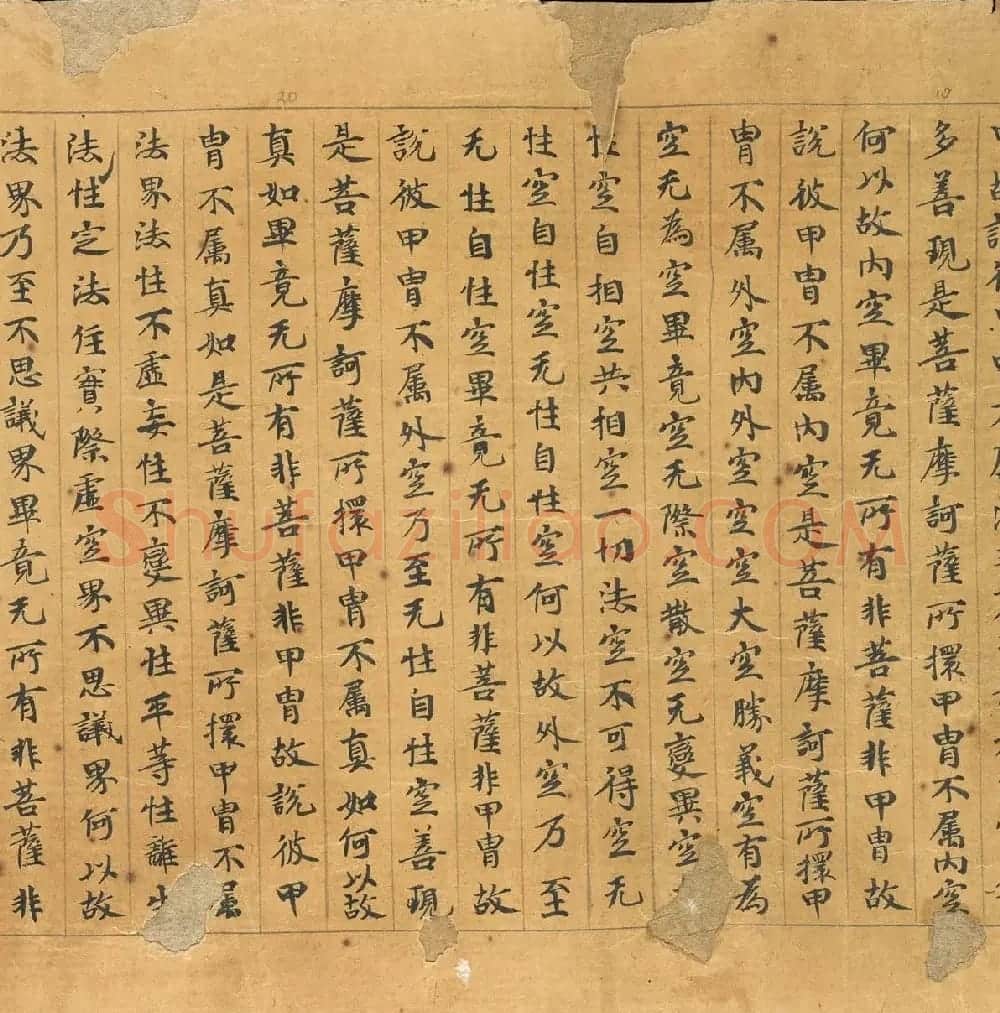 10
多善現是菩薩摩訶薩所擐甲冑不属內空
何以故內空畢竟无所有非菩薩非甲冑故
說彼甲冑不属內空是菩薩摩訶薩所擐甲
冑不属外空內外空空空大空勝義空有為
空无為空畢竟空无際空散空无變異空
性空自相空共相空一切法空不可得空无
性空自性空无性自性空何以故外空乃至
无性自性空畢竟无所有非菩薩非甲冑故
說彼甲冑不属外空乃至无性自性空善現
是菩薩摩訶薩所擐甲冑不属真如何以故
20
真如畢竟无所有非菩薩非甲冑故說彼甲
冑不属真如是菩薩摩訶薩所擐甲冑不属
法界法性不虛妄性不變異性平等性離生
法性定法住實際虛空界不思議界何以故
法界乃至不思議界畢竟无所有非菩薩非
Shufaziliao.COM